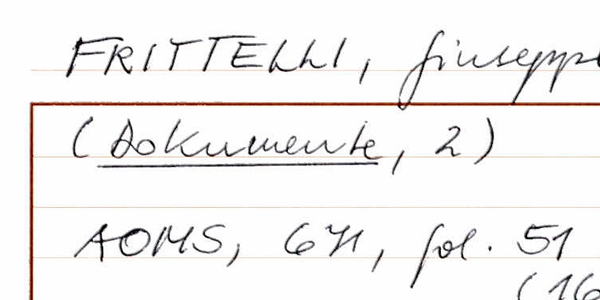 FRITTELLI, Giuseppe
(Dokumente, 2)
AOMS, 671, fol. 51
(16